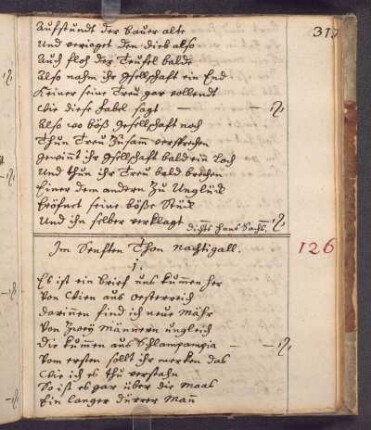 317
Aufstundt der bauer alte
Und veriaget den dieb also
Auch floh der Teüfel balde
Also nahm ihr Gesellschaft ein End
Keiner seine Treu gar vollendt
Wie diese fabel sagt
Also wo böß gesellschaft noch
Thun Treu Zusam̄ versprechen
gewint ihr gesellschaft bald ein Loch
Und thun ihr Treu bald brechen
Einer dem andern Zu Unglück
Eröfnet seine böße Stück
Und ihn selber verklagt
dichts Hans Sachs.
126
Im Senften Thon Nachtigall.
1.
Es ist ein brief uns kummen her
Von Wien aus Oesterreich
darinnen find ich neue Mähr
Von Zweÿ Männern ungleich
Die kummen aus Schlampampia
Vom ersten sollt ihr merken das
Wie ich es thu verstahn
So ist es gar über die maas
Ein langer dürrer Man̄